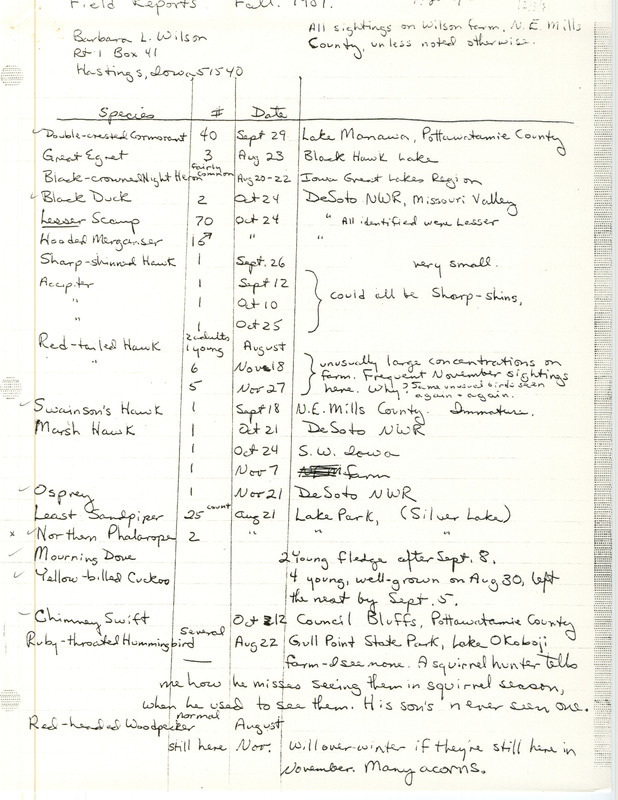 Field Reports Fall. 1981.
Barbara L. Wilson
Rt 1 Box 41
Hastings, Iowa 51540
All sightings on Wilson farm, N.E. Mills
County, unless noted otherwise.
Species # Date
Double-crested Cormorant 40 Sept 29 Lake Manawa, Pottawatamie County
Great Egret 3 Aug 23 Black Hawk Lake
Black-crowned Night Heron fairly common Aug 20-22 Iowa Great Lakes Region
Black Duck 2 Oct 24 DeSoto NWR, Missouri Valley
Lesser Scaup 70 Oct 24 " All identified were Lesser
Hooded Merganser 15 " "
Sharp-shinned Hawk 1 Sept. 26 very small.
Accipiter 1 Sept 12
" 1 Oct 10 could all be Sharp-shins,
" 1 Oct 25
Red-tailed Hawk 2 adults 1 young August
" 6 Nov 18 unusually large concentrations on
farm. Frequent November sightings
5 Nov 27 here. Why? Same unusual birds seen
again + again.
Swainson's Hawk 1 Sept 18 N.E. Mills County. Immature.
Marsh Hawk 1 Oct 21 DeSoto NWR
1 Oct 24 S.W. Iowa
1 Nov 7 farm
Osprey 1 Nov 21 DeSoto NWR
Least Sandpiper 25 count Aug 21 Lake Park, (Silver Lake)
x Northern Phalarope 2 " " "
Mourning Dove 2 young fledge after Sept. 8.
Yellow-billed Cuckoo 4 young, well-grown on Aug 30, left
the nest by Sept. 5.
Chimney Swift Oct 12 Council Bluffs, Pottawatamie County
Ruby-throated Hummingbird several Aug 22 Gull Point State Park, Lake Okoboji
— farm-I see none. A squirrel hunter tells
me how he misses seeing them in squirrel season,
when he used to see them. His son's never seen one.
Red-headed Woodpecker normal August
still here Nov. will over-winter if they're still here in
November. Many acorns.